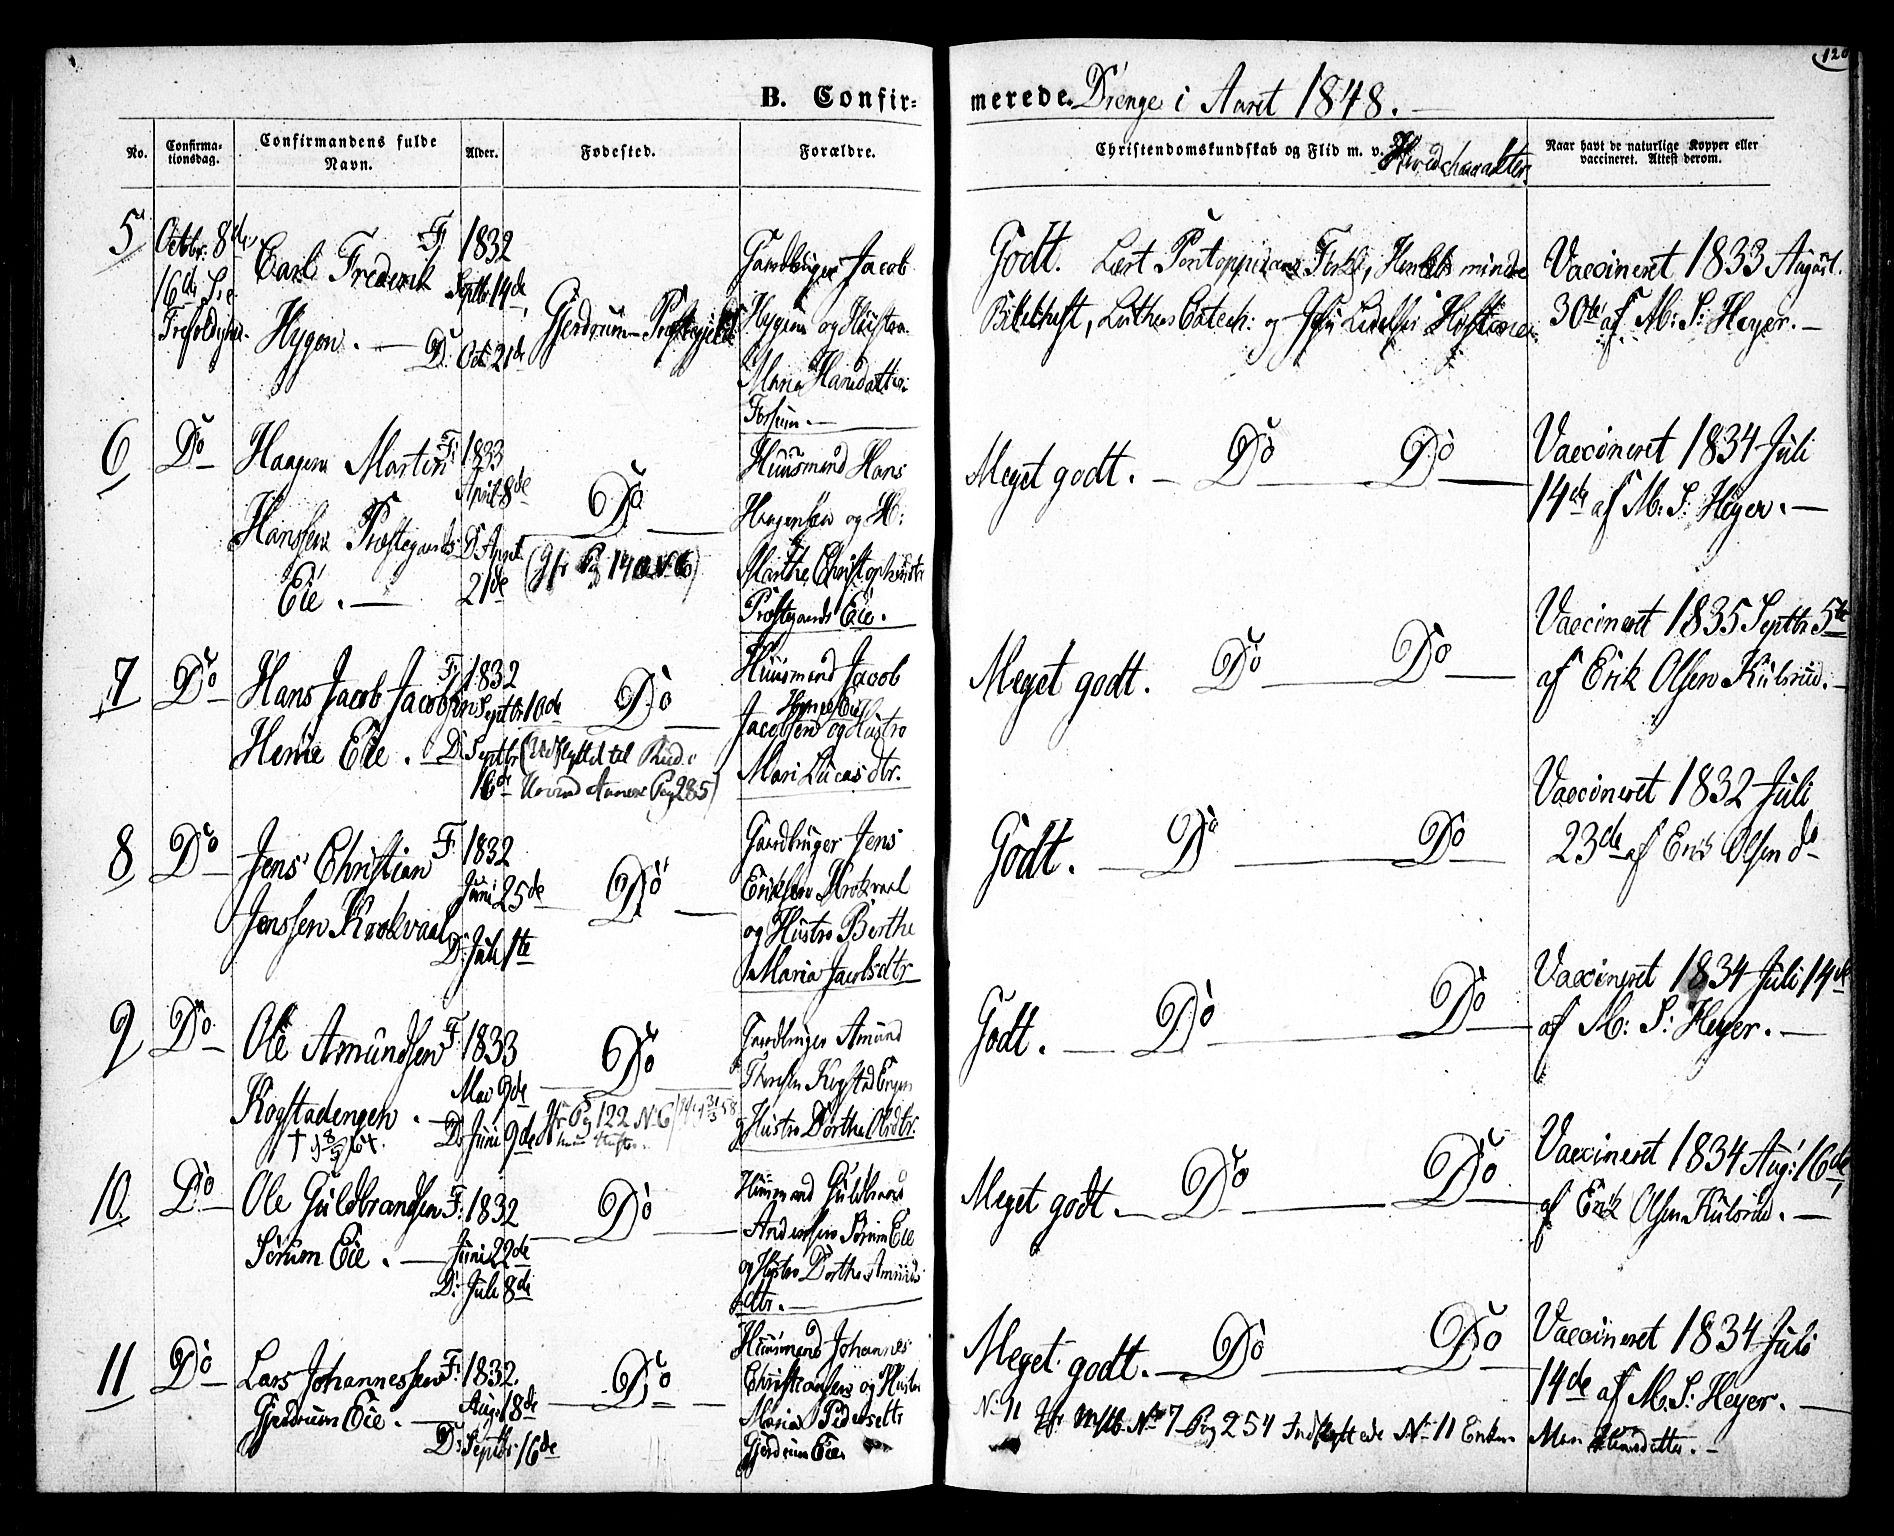 120
B. Confir=
merede. Drenge i Aaret 1848.
No.
Confirma-
tionsdag.
Confirmandens fulde
Navn.
Alder.
Fødested.
Forældre.
Christendomskundskab og Flid m. v.
Naar havt de naturlige Kopper eller
vaccineret. Attest derom.
5
Octbr. 8de
16de S. e.
Carl Frederik
Hygen.
F.
1832
Septbr. 14de
D. Oct. 21de
Gjerdrum Præstegjeld
Gaardbruger Jacob
Hygen og Hustru
Maria Hansdatter
Godt. Lært Pontoppidans Forkl., Herslebs mindre
Bibelhist, Luthers Catech: og Jesu Lidelses Historie
Vaccineret 1833 August
30te af M: S: Heyer.
6
Do
Haagen Martin
Hanssen Præstegaards
Eie.
F. 1833
April 8de
D. April
21de
Do
(Pag 140 N 6)
Huusmand Hans
Haagensen og H:
Marthe Christophersdtr
Præstegaards Eie.
Meget godt. Do Do
Vaccineret 1834 Juli
14de af M. S. Heyer.
7
Do
Hans Jacob Jacobsen
Eie.
F. 1832
Septbr 10de
D. Septbr
16de
Do
(Udflyttet til Rud i
Pag 285)
Huusmand Jacob
Jacobsen og Hustru
Mari Lucasdtr.
Meget godt. Do Do
Vaccineret 1835 Septbr 5te
af Erik Olsen Kulsrud.
8
Do
Jens Christian
Jenssen Krokvaal
F. 1832
Juni 25de
D. Juli 1te
Do
Gaardbruger Jens
Eriksen Krokvaal
og Hustru Berthe
Maria Jacobsdtr
Godt. Do Do
Vaccineret 1832 Juli
23de af Erik Olsen do
9
Do
Ole Amundsen
Kogstadengen.
F. 1833
Mai 9de
D. Juni 9de
Do
Pag 122 N. 6
Gaardbruger Amund
Kogstadengen
og Hustru Dorthe Olsdtr.
Godt. Do Do
Vaccineret 1834 Juli 14de
af M: S: Heyer.
10
Do
Ole Guldbrandsen
Sørum Eie.
F. 1832
Juni 22de
D. Juli 8de
Do
Huusmand Guldbrand
Andersen Sørum Eie
og Hustru Dorthe Amunds
dtr.
Meget godt. Do Do
Vaccineret 1834 Aug: 16de
af Erik Olsen Kulsrud.
11
Do
Lars Johannessen
Gjerdrum Eie.
F. 1832.
Aug. 18de
D. Septbr. 16de
Do
Huusmand Johannes
Christiansen og Hustru
Maria Pedersdtr
Gjerdrum Eie
Meget godt. Do Do
Vaccineret 1834 Juli
14de af M. S: Heyer.
N. 11 No 7 Pag 254 Indflyttede N. 11 Enken Mari